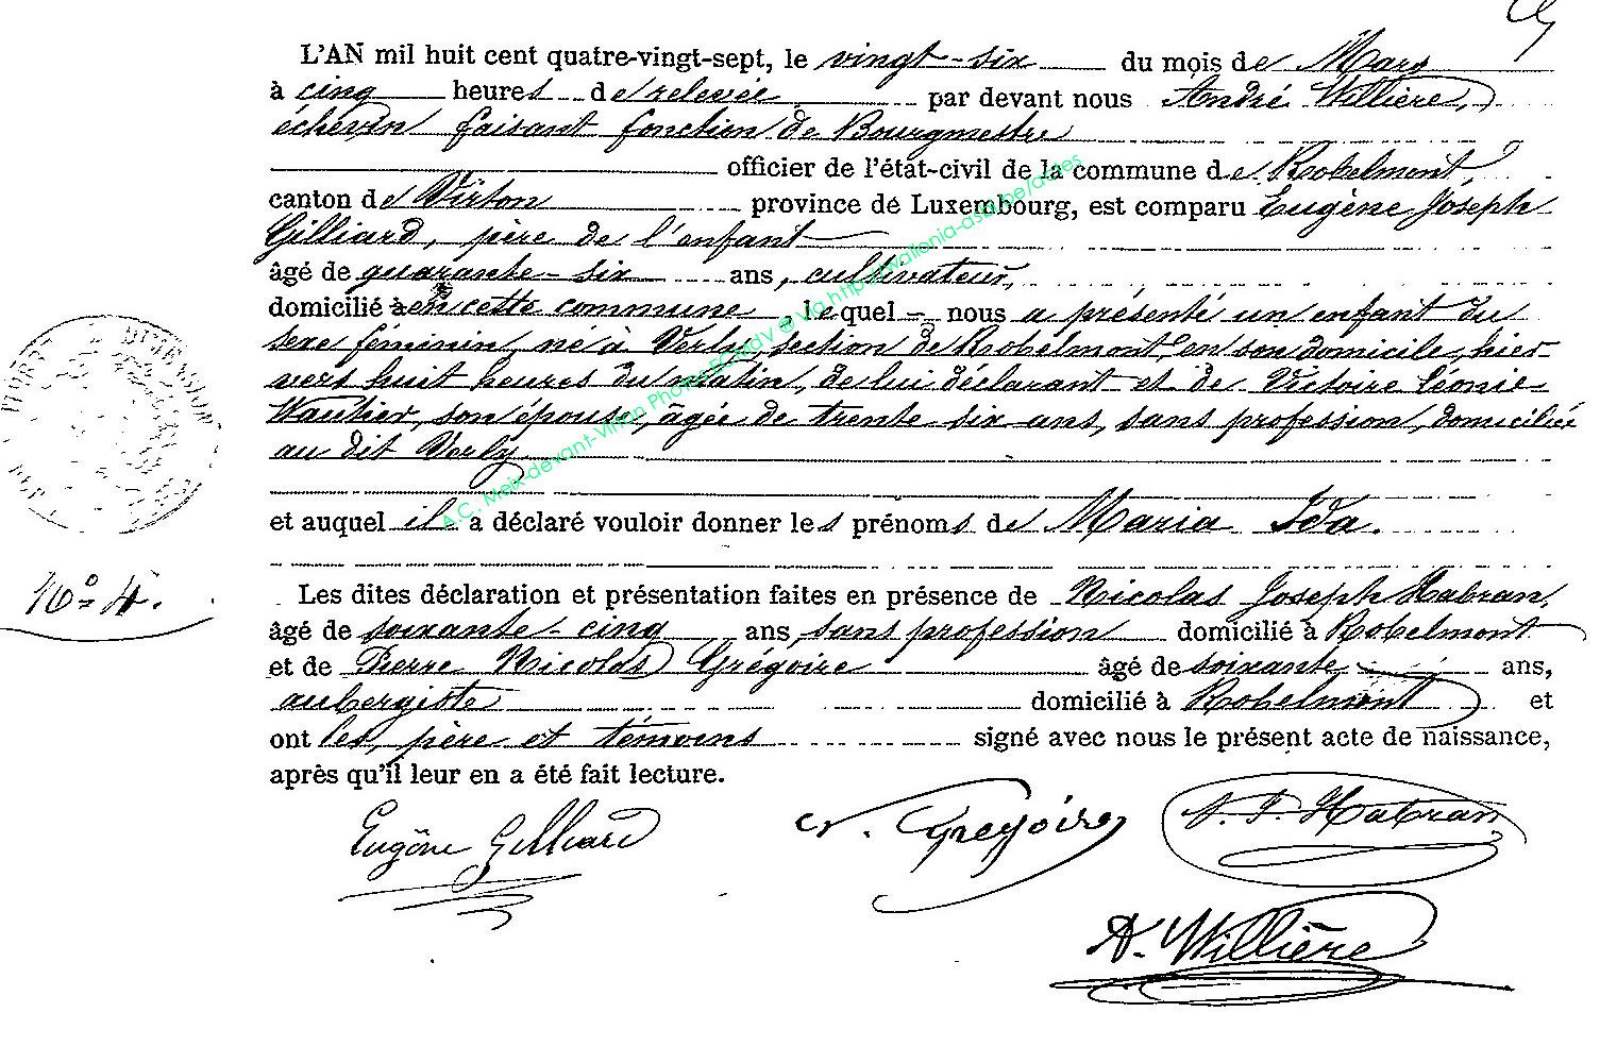 L'AN mil huit cent quatre-vingt-sept, le vingt-six du mois de Mars
à cinq heures de relevée par devant nous André Willière,
échevin faisant fonction de Bourgmestre
officier de l'état-civil de la commune de Robelmont,
canton de Virton province de Luxembourg, est comparu Eugène Joseph
Gilliard, père de l'enfant
âgé de quarante-six ans, cultivateur,
domicilié à en cette commune, lequel nous a présenté un enfant du
sexe féminin, né à Verly, section de Robelmont, en son domicile, hier
vers huit heures du matin, de lui déclarant et de Victoire Léonie
Wautier, son épouse, âgée de trente-six ans, sans profession, domiciliée
au dit Verly
et auquel il a déclaré vouloir donner les prénoms de Maria Ida.
N° 4.
Les dites déclaration et présentation faites en présence de Nicolas Joseph Habran,
âgé de soixante-cinq ans, sans profession domicilié à Robelmont
et de Pierre Nicolas Grégoire âgé de soixante ans,
aubergiste domicilié à Robelmont et
ont les père et témoins signé avec nous le présent acte de naissance,
après qu'il leur en a été fait lecture.
Eugène Gilliard N. Grégoire N. J. Habran
A. Willière
A.C. Meix-devant-Virton Photos ECMdV @ Via http://wallonia-asbl.be/actes